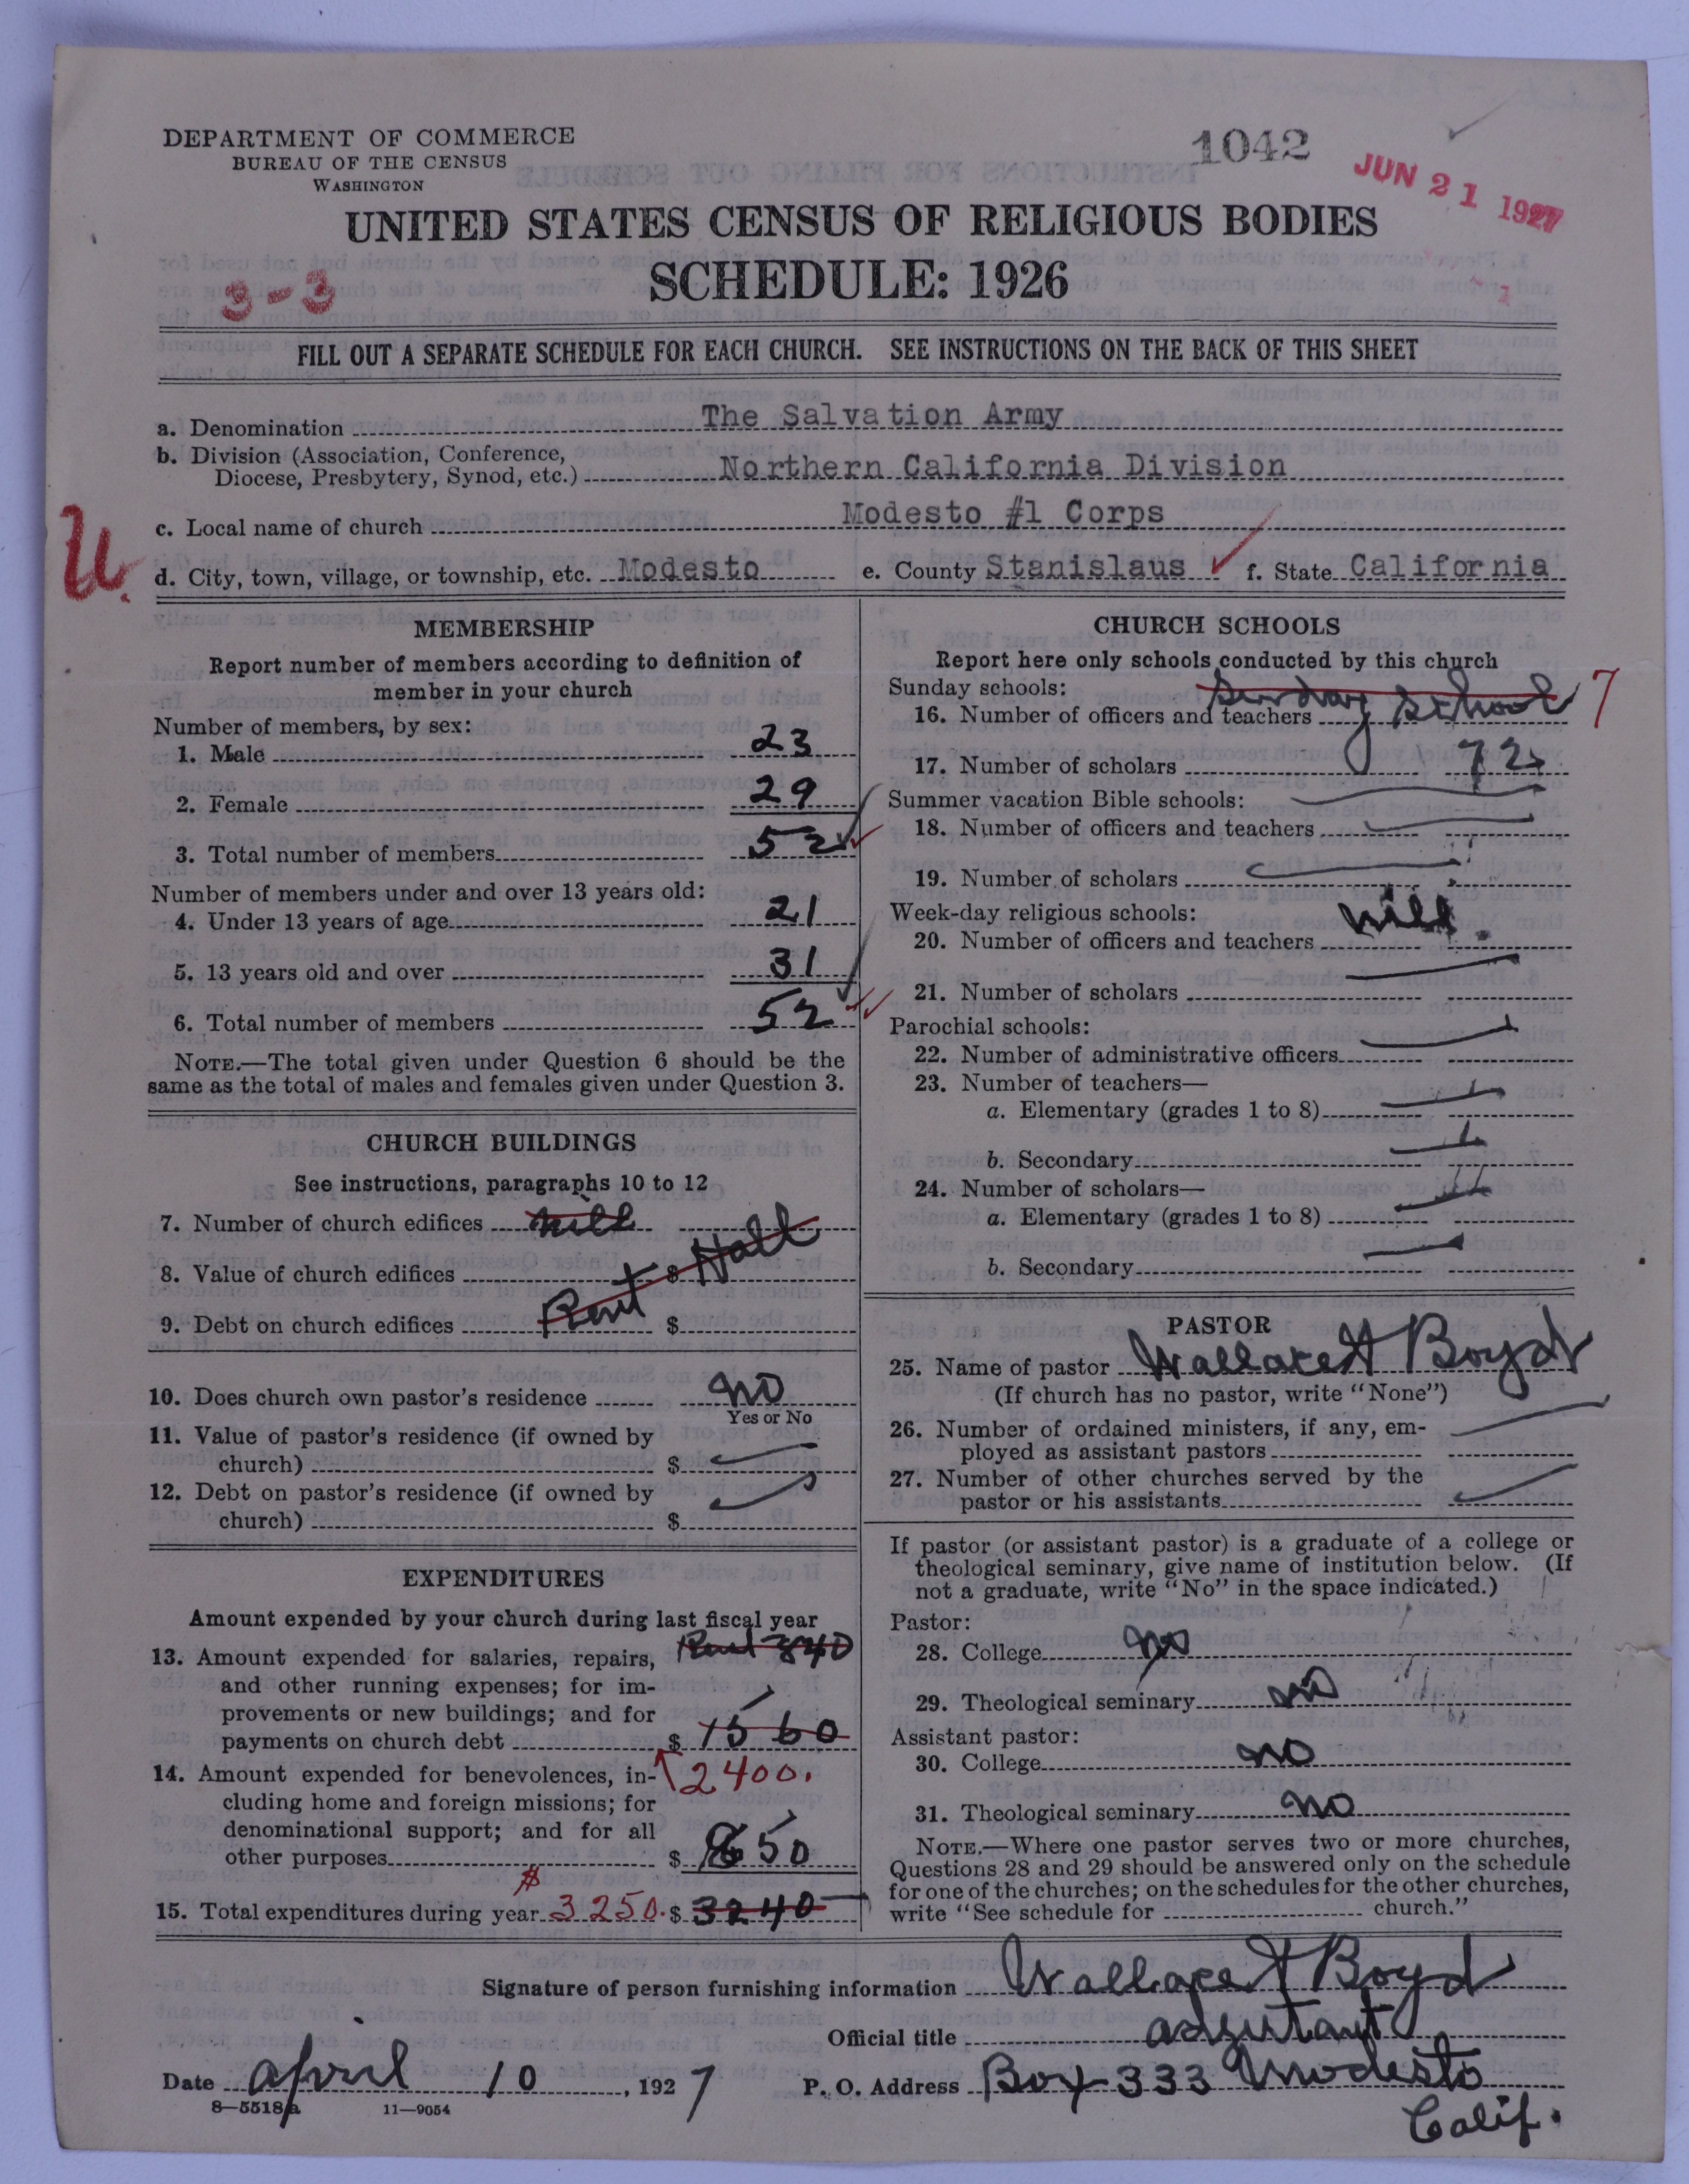 DEPARTMENT OF COMMERCE
BUREAU OF THE CENSUS
WASHINGTON
1042
JUN 21 1927
UNITED STATES CENSUS OF RELIGIOUS BODIES
SCHEDULE: 1926
3-3
FILL OUT A SEPARATE SCHEDULE FOR EACH CHURCH. SEE INSTRUCTIONS ON THE BACK OF THIS SHEET
a. Denomination The Salvation Army
b. Division (Association, Conference,
Diocese, Presbytery, Synod, etc.) Northern California Division
c. Local name of church Modesto #1 Corps
U.
d. City, town, village, or township, etc. Modesto e. County Stanislaus f. State California
MEMBERSHIP
Report number of members according to definition of
member in your church
Number of members, by sex:
1. Male 23
2. Female 29
3. Total number of members 52
Number of members under and over 13 years old:
4. Under 13 years of age 21
5. 13 years old and over 31
6. Total number of members 52
NOTE.—The total given under Question 6 should be the
same as the total of males and females given under Question 3.
CHURCH BUILDINGS
See instructions, paragraphs 10 to 12
7. Number of church edifices nill
8. Value of church edifices $ Hall
9. Debt on church edifices Rent $
10. Does church own pastor's residence no
Yes or No
11. Value of pastor's residence (if owned by
church) $
12. Debt on pastor's residence (if owned by
church) $
EXPENDITURES
Amount expended by your church during last fiscal year
13. Amount expended for salaries, repairs, Rent 840
and other running expenses; for im-
provements or new buildings; and for
payments on church debt $ 1560
2400.
14. Amount expended for benevolences, in-
cluding home and foreign missions; for
denominational support; and for all
other purposes $ 850
15. Total expenditures during year $ 3250. $ 3240
CHURCH SCHOOLS
Report here only schools conducted by this church
Sunday schools: Sunday School 7
16. Number of officers and teachers
17. Number of scholars 72
Summer vacation Bible schools:
18. Number of officers and teachers
19. Number of scholars
Week-day religious schools: nill.
20. Number of officers and teachers
21. Number of scholars
Parochial schools:
22. Number of administrative officers
23. Number of teachers—
a. Elementary (grades 1 to 8)
b. Secondary
24. Number of scholars—
a. Elementary (grades 1 to 8)
b. Secondary
PASTOR
25. Name of pastor Wallace A Boyd
(If church has no pastor, write "None")
26. Number of ordained ministers, if any, em-
ployed as assistant pastors
27. Number of other churches served by the
pastor or his assistants
If pastor (or assistant pastor) is a graduate of a college or
theological seminary, give name of institution below. (If
not a graduate, write "No" in the space indicated.)
Pastor:
28. College no
29. Theological seminary no
Assistant pastor:
30. College no
31. Theological seminary no
NOTE.—Where one pastor serves two or more churches,
Questions 28 and 29 should be answered only on the schedule
for one of the churches; on the schedules for the other churches,
write "See schedule for church."
Signature of person furnishing information Wallace A Boyd
Official title adjutant
Date april 10, 1927 P. O. Address Box 333 Modesto
Calif.
8—5518a 11—9054